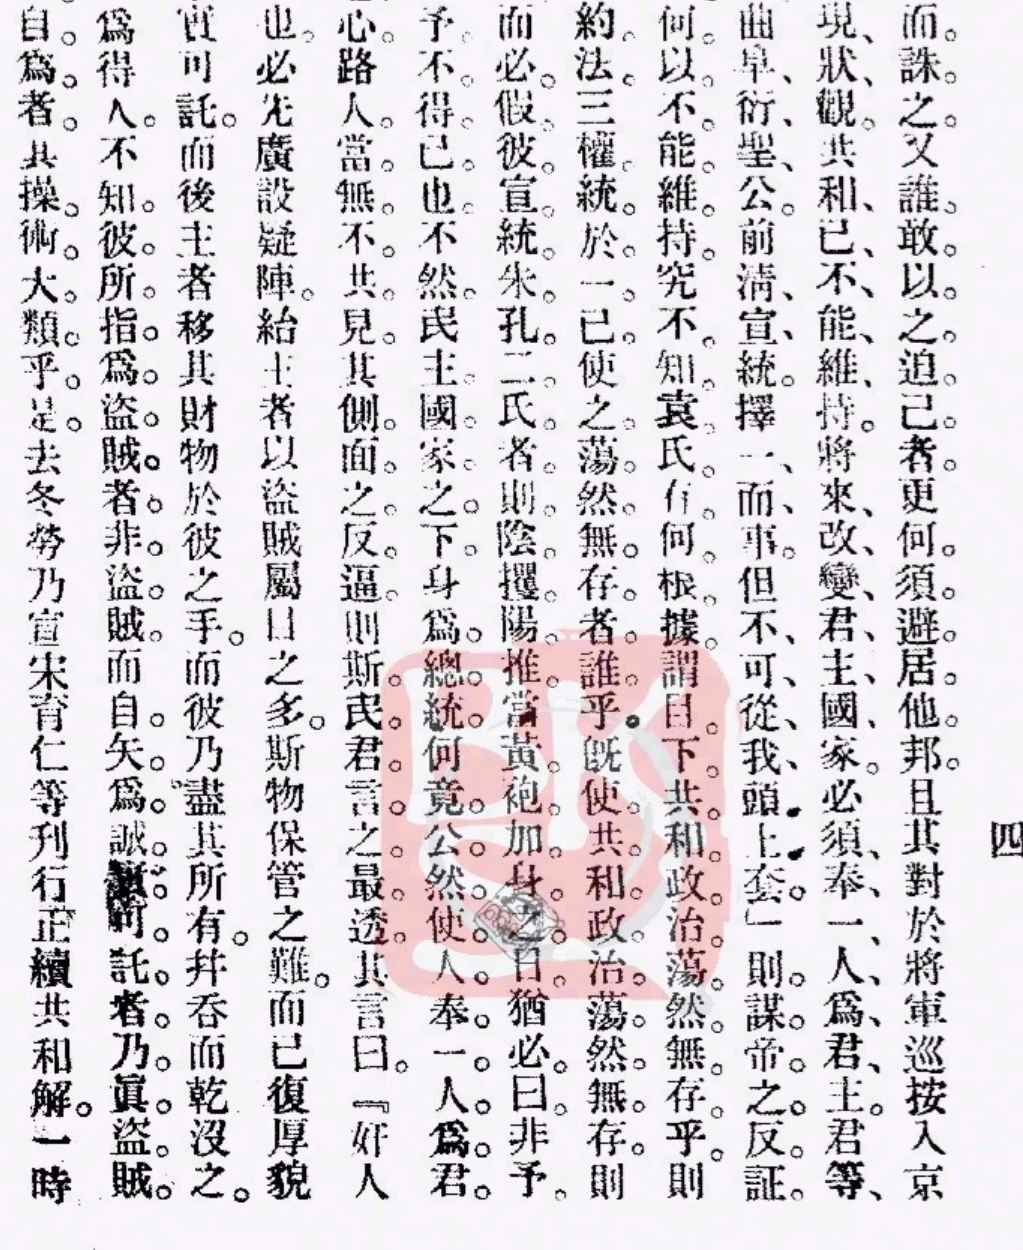 四
而。誅。之。又誰。敢。以。之。迫。己。者。更何。須。避。居。他。邦。且其對於將軍巡按入京
現、狀、觀。共、和、已、不、能、維、持。將、來、改、變、君、主、國、家。必、須、奉、一、人、爲、君、主。君等、
曲阜、衍、聖、公。前清、宣、統。擇一、而、事。但不、可、從、我、頭、上、套。」則。謀。帝。之。反。証。
何。以。不。能。維。持。究不。知。袁。氏。有。何。根。據。謂目。下。共。和。政。治。蕩。然。無。存。乎。則
約。法。三權。統。於。一。己。使之。蕩。然。無。存。者。誰。乎。既使。共。和。政。治。蕩。然。無。存。則
而必。假。彼。宣。統。朱。孔。二。氏。者。則。陰。攫。陽。推。當黃。袍。加。身。之日。猶必。曰。非予。
予。不。得。已。也。不然。民主。國家。之。下。身爲。總。統。何竟。公。然。使。人。奉。一。人。爲。君。
心。路人。當。無。不。共。見。其側。面。之。反。逼。則斯。民。君。言。之。最。透。其言曰。『奸人
也。必先廣設疑陣。紿主者以盜賊屬目之多。斯物保管之難。而已復厚貌
實可託。而後主者移其財物於彼之手。而彼乃盡其所有。幷吞而乾沒之。
爲得人。不知。彼所。指。爲。盜。賊。者。非。盜。賊。而自。矢。爲。誠。實。可。託。者。乃。眞。盜。賊。
自。爲。者。其操。術。大。類。乎。是。去冬勞乃宣宋育仁等刋行正續共和解。一時